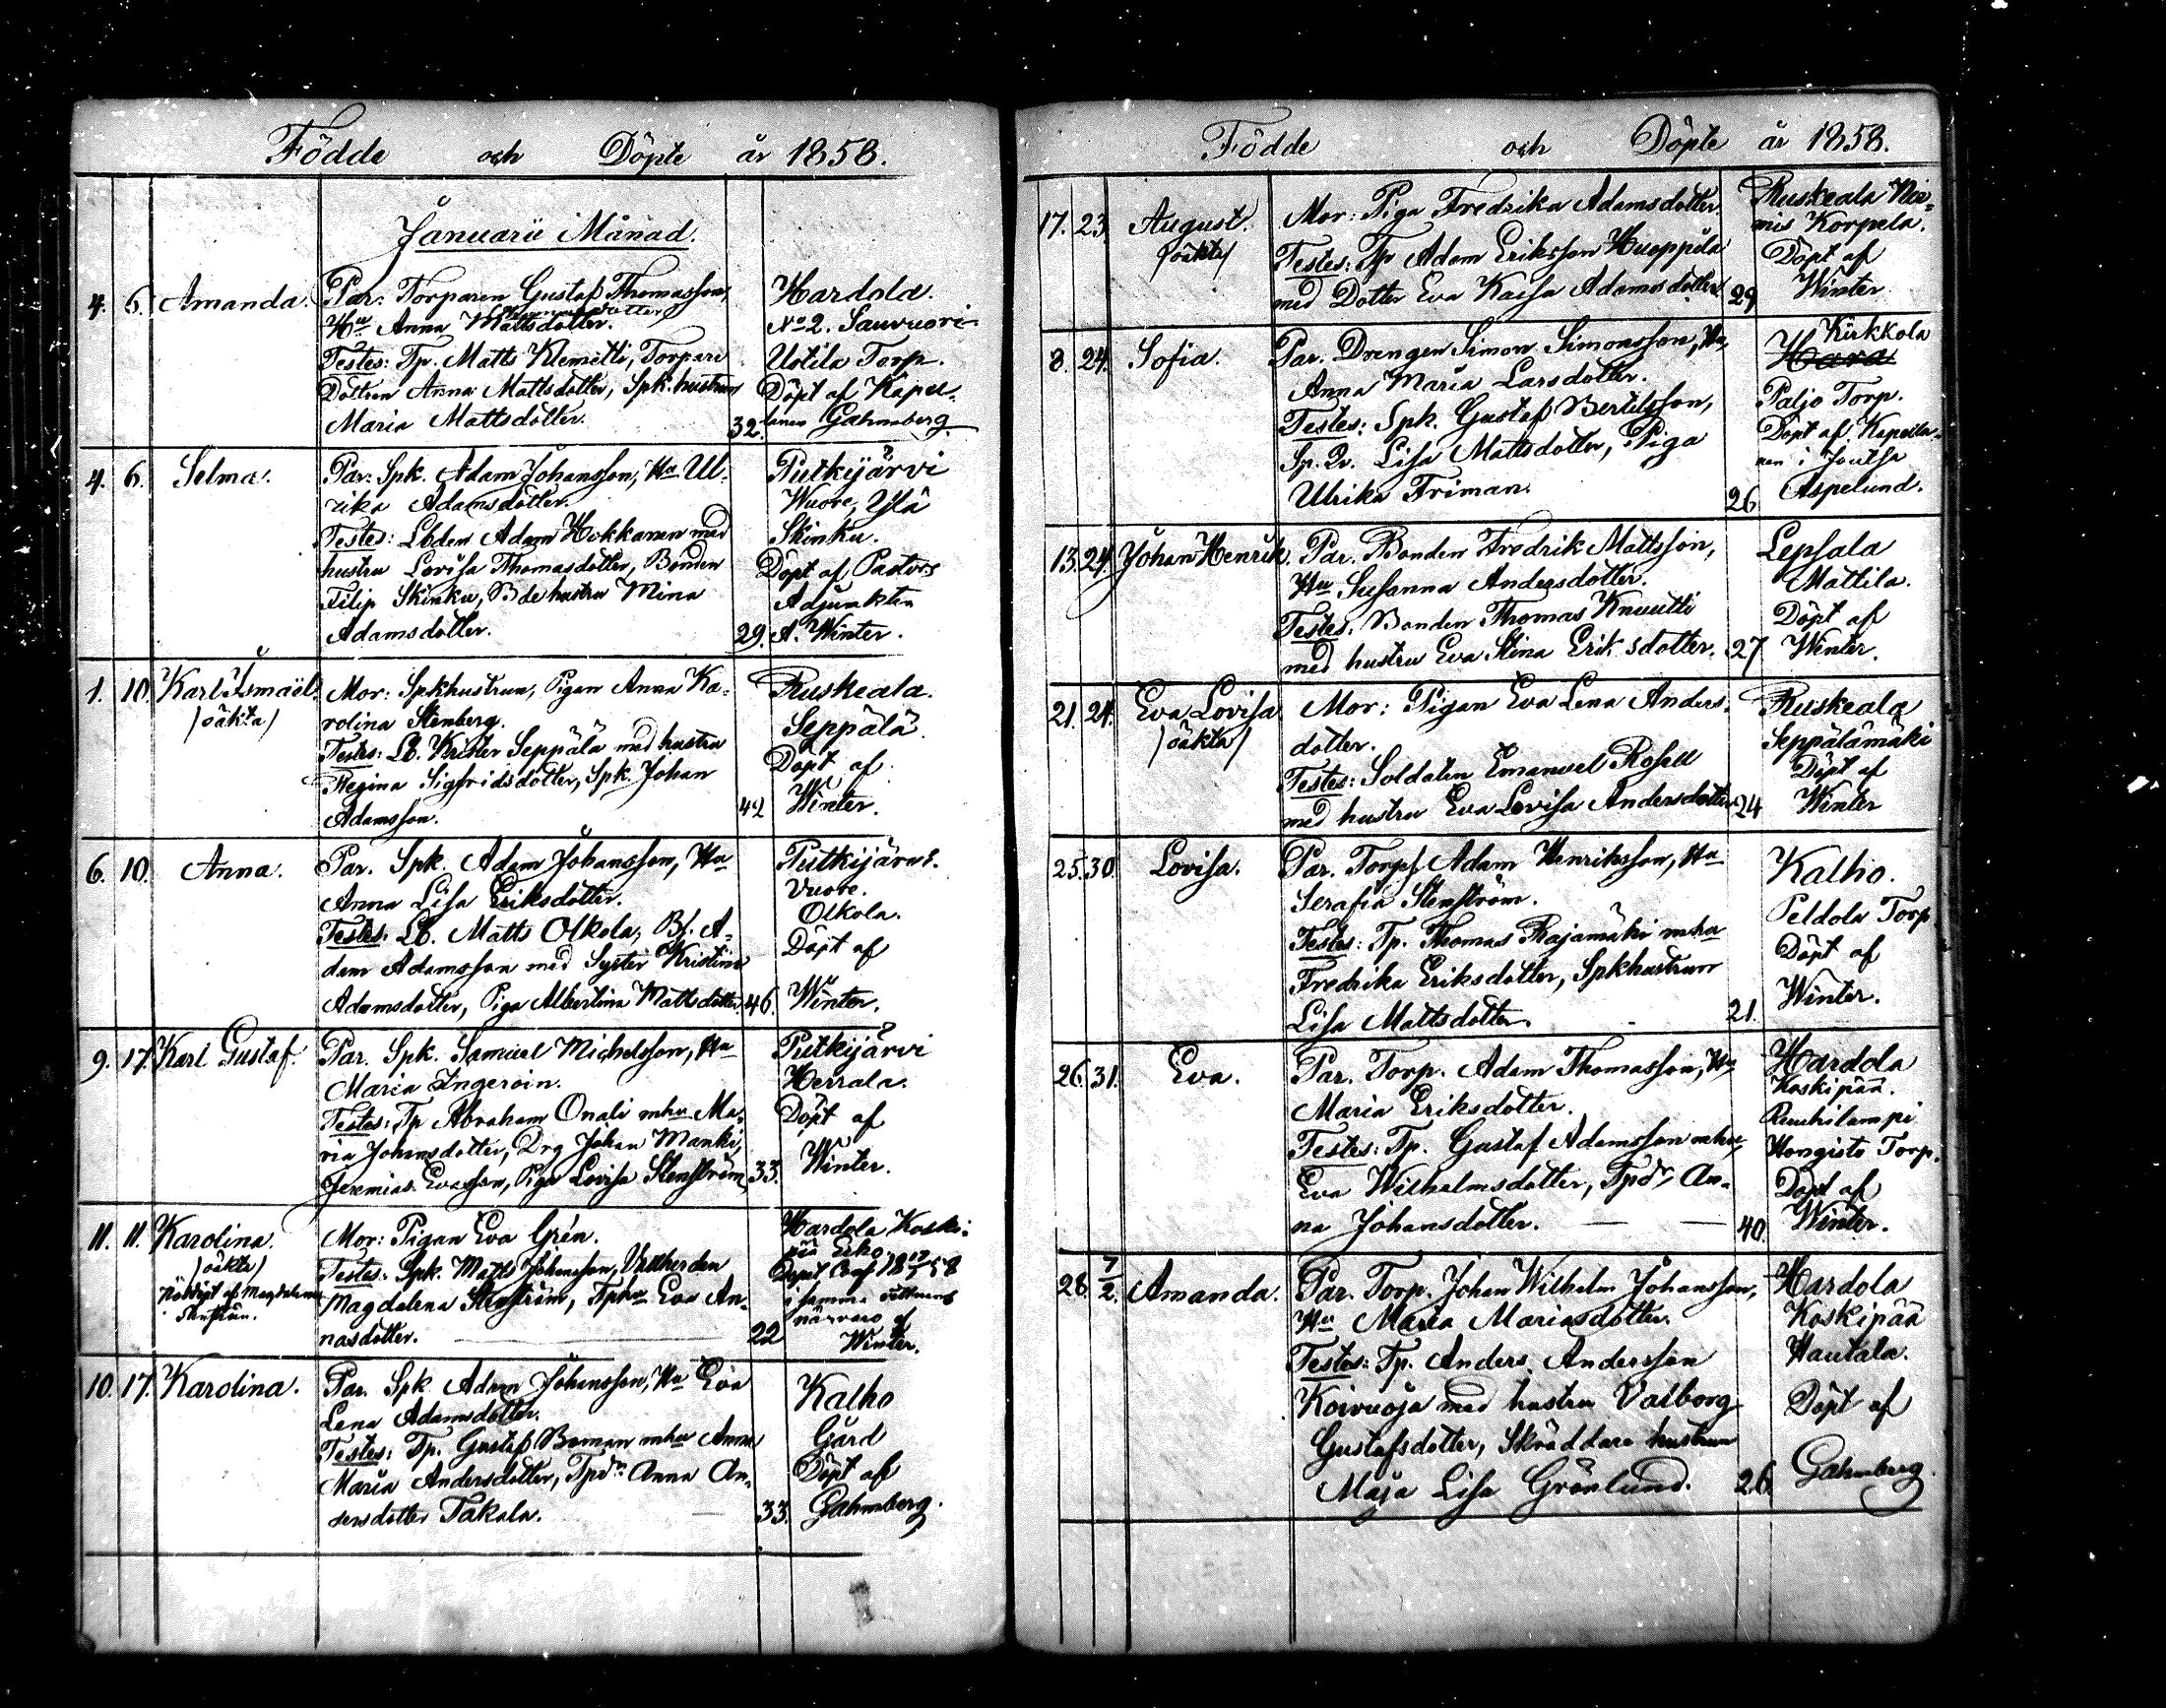 Födde och Döpte år 1858.
Januarii Månad.
4. 6. Amanda. Par: Torparen Gustaf Thomasson,
Hu Anna Mattsdotter.
Testes: Tp. Matts Klemetti, Torpare
Dottren Anna Mattsdotter, Spk. hustrun
Maria Mattsdotter. 32.
Hardola.
No 2. Sauvuori
Uotila Torp.
Döpt af Kapel-
lanen Gahmberg.
4. 6. Selma. Par: Spk. Adam Johansson, Hu Ul-
rika Adamsdotter.
Testes: Lbden Adam Hokkanen med
hustru Lovisa Thomasdotter, Bonden
Filip Skinku, Bde hustru Mina
Adamsdotter. 29.
Putkijärvi
Wuore, Ylä
Skinku.
Döpt af Pastors
Adjunkten
A. Winter.
1. 10. Karl Ismaël. Mor: Spkhustrun, Pigan Anna Ka-
/oäkta/ rolina Stenberg.
Testes: Lb. Krister Seppälä med hustru
Regina Sigfridsdotter, Spk. Johan
Adamsson. 42
Ruskeala.
Seppälä.
Döpt af
Winter.
6. 10. Anna. Par. Spk. Adam Johansson, Hu
Anna Lisa Eriksdotter.
Testes: Lb. Matts Olkola, Bs. A-
dam Adamsson med Syster Kristina
Adamsdotter, Piga Albertina Mattsdotter. 46.
Putkijärvi.
Vuore.
Olkola.
Döpt af
Winter.
9. 17. Karl Gustaf. Par. Spk. Samuel Michelsson, Hu
Maria Ingeroin.
Testes: Tp Abraham Onali mhu Ma-
ria Johansdotter, Drg Johan Manki,
Jeremias Evasson, Piga Lovisa Stenström 33.
Putkijärvi
Herrala.
Döpt af
Winter.
11. 11. Karolina. Mor: Pigan Eva Grén.
/oäkta/ Testes: Spk. Matts Johansson,
Nöddöpt af Magdalena Magdalena Stenström, Tphu Eva An-
Stenström. nasdotter. 22
Hardola Koski-
pää Erko.
i samma vittnens
närvaro af
Winter.
10. 17. Karolina. Par. Spk. Adam Johansson, Hu Eva
Lena Adamsdotter.
Testes: Tp. Gustaf Boman mhu Anna
Maria Andersdotter, Tpdr Anna An-
dersdotter Takala. 33.
Kalho
Gård
Döpt af
Gahmberg.
Födde och Döpte år 1858.
17. 23. August. Mor: Piga Fredrika Adamsdotter.
/oäkta/ Testes: Tp Adam Eriksson Hueppilä
med Dotter Eva Kaisa Adamsdotter. 29
Ruskeala Nie-
mis Korpela.
Döpt af
Winter.
8. 24. Sofia. Par. Drengen Simon Simonsson, Hu
Anna Maria Larsdotter.
Testes: Spk. Gustaf Bertilsson,
Sp. Dr. Lisa Mattsdotter, Piga
Ulrika Friman. 26
Kirkkola
Hara
Paljo Torp.
Döpt af Kapella-
nen i Joutsa
Aspelund.
13. 24. Johan Henrik. Par. Bonden Fredrik Mattsson,
Hu Susanna Andersdotter.
Testes: Bonden Thomas Knuutti
med hustru Eva Stina Eriksdotter. 27
Lepsala
Mattila.
Döpt af
Winter.
21. 24. Eva Lovisa Mor: Pigan Eva Lena Anders-
/oäkta/ dotter.
Testes: Soldaten Emanuel Rosell
med hustru Eva Lovisa Andersdotter 24
Ruskeala
Seppälämäki
Döpt af
Winter
25. 30. Lovisa. Par. Torps. Adam Henriksson, Hu
Serafia Stenström.
Testes: Tp. Thomas Rajamäki mhu
Fredrika Eriksdotter, Spkhustrun
Lisa Mattsdotter. 21.
Kalho.
Peldola Torp
Döpt af
Winter.
26. 31. Eva. Par. Torp. Adam Thomasson, Hu
Maria Eriksdotter.
Testes: Tp. Gustaf Adamsson mhu
Eva Wilhelmsdotter, Tpdr An-
na Johansdotter. 40.
Hardola
Koskipää.
Ruuhilampi
Hongisto Torp.
Döpt af
Winter.
28. 7/2. Amanda. Par. Torp. Johan Wilhelm Johansson,
Hu Maria Mariasdotter.
Testes: Tp. Anders Andersson
Koivuoja med hustru Valborg
Gustafsdotter, Skräddare hustrun
Maja Lisa Grönlund. 26.
Hardola
Koskipää
Hautala.
Döpt af
Gahmberg.